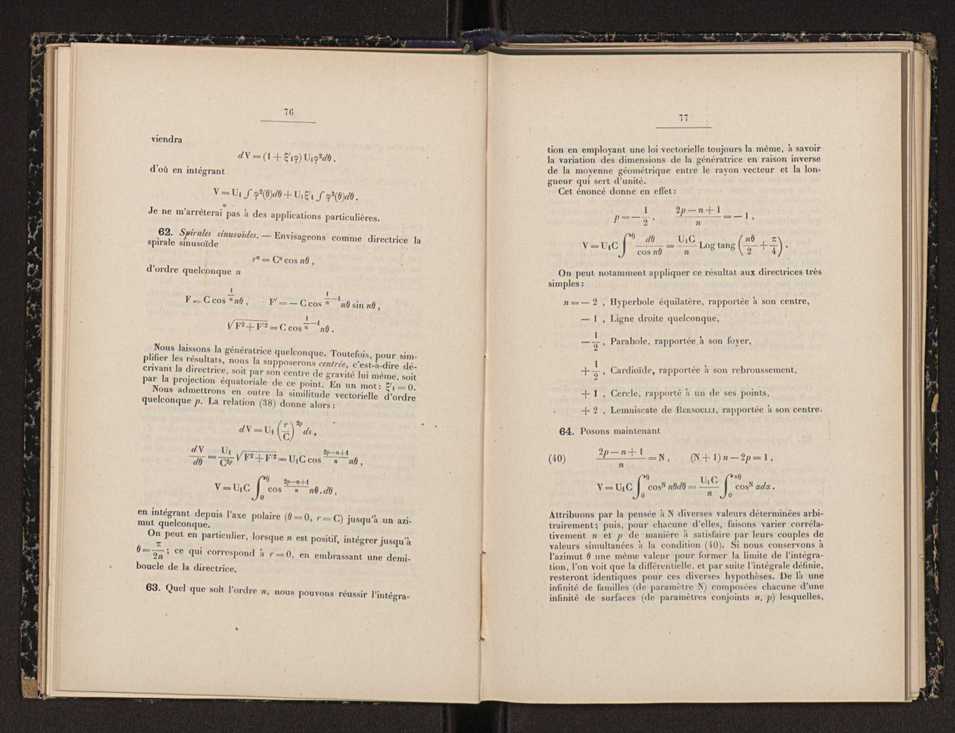 76
viendra
dV = (1 + ξ'₁φ) U₁φ²dθ.
d'où en intégrant
V = U₁ ∫ φ²(θ)dθ + U₁ξ'₁ ∫ φ³(θ)dθ.
Je ne m'arrêterai pas à des applications particulières.
62. Spirales sinusoïdes. — Envisageons comme directrice la
spirale sinusoïde
rⁿ = Cⁿ cos nθ,
d'ordre quelconque n
F = C cos^{1/n} nθ, F' = — C cos^{1/n — 1} nθ sin nθ,
√(F² + F'²) = C cos^{1/n — 1} nθ.
Nous laissons la génératrice quelconque. Toutefois, pour sim-
plifier les résultats, nous la supposerons centrée, c'est-à-dire dé-
crivant la directrice, soit par son centre de gravité lui même, soit
par la projection équatoriale de ce point. En un mot: ξ'₁ = 0.
Nous admettrons en outre la similitude vectorielle d'ordre
quelconque p. La relation (38) donne alors:
dV = U₁ (r/C)^{2p} ds,
dV/dθ = U₁/C^{2p} √(F² + F'²) = U₁C cos^{(2p—n+1)/n} nθ,
V = U₁C ∫₀^θ cos^{(2p—n+1)/n} nθ.dθ,
en intégrant depuis l'axe polaire (θ = 0, r = C) jusqu'à un azi-
mut quelconque.
On peut en particulier, lorsque n est positif, intégrer jusqu'à
θ = π/2n; ce qui correspond à r = 0, en embrassant une demi-
boucle de la directrice.
63. Quel que soit l'ordre n, nous pouvons réussir l'intégra-
77
tion en employant une loi vectorielle toujours la même, à savoir
la variation des dimensions de la génératrice en raison inverse
de la moyenne géométrique entre le rayon vecteur et la lon-
gueur qui sert d'unité.
Cet énoncé donne en effet:
p = — 1/2, (2p — n + 1)/n = — 1,
V = U₁C ∫₀^θ dθ/cos nθ = U₁C/n Log tang (nθ/2 + π/4).
On peut notamment appliquer ce résultat aux directrices très
simples:
n = — 2, Hyperbole équilatère, rapportée à son centre,
— 1, Ligne droite quelconque,
— 1/2, Parabole, rapportée à son foyer,
+ 1/2, Cardioïde, rapportée à son rebroussement,
+ 1, Cercle, rapporté à un de ses points,
+ 2, Lemniscate de BERNOULLI, rapportée à son centre.
64. Posons maintenant
(40) (2p — n + 1)/n = N, (N + 1) n — 2p = 1,
V = U₁C ∫₀^θ cos^N nθdθ = U₁C/n ∫₀^{nθ} cos^N αdα.
Attribuons par la pensée à N diverses valeurs déterminées arbi-
trairement; puis, pour chacune d'elles, faisons varier corréla-
tivement n et p de manière à satisfaire par leurs couples de
valeurs simultanées à la condition (40). Si nous conservons à
l'azimut θ une même valeur pour former la limite de l'intégra-
tion, l'on voit que la différentielle, et par suite l'intégrale définie,
resteront identiques pour ces diverses hypothèses. De là une
infinité de familles (de paramètre N) composées chacune d'une
infinité de surfaces (de paramètres conjoints n, p) lesquelles,